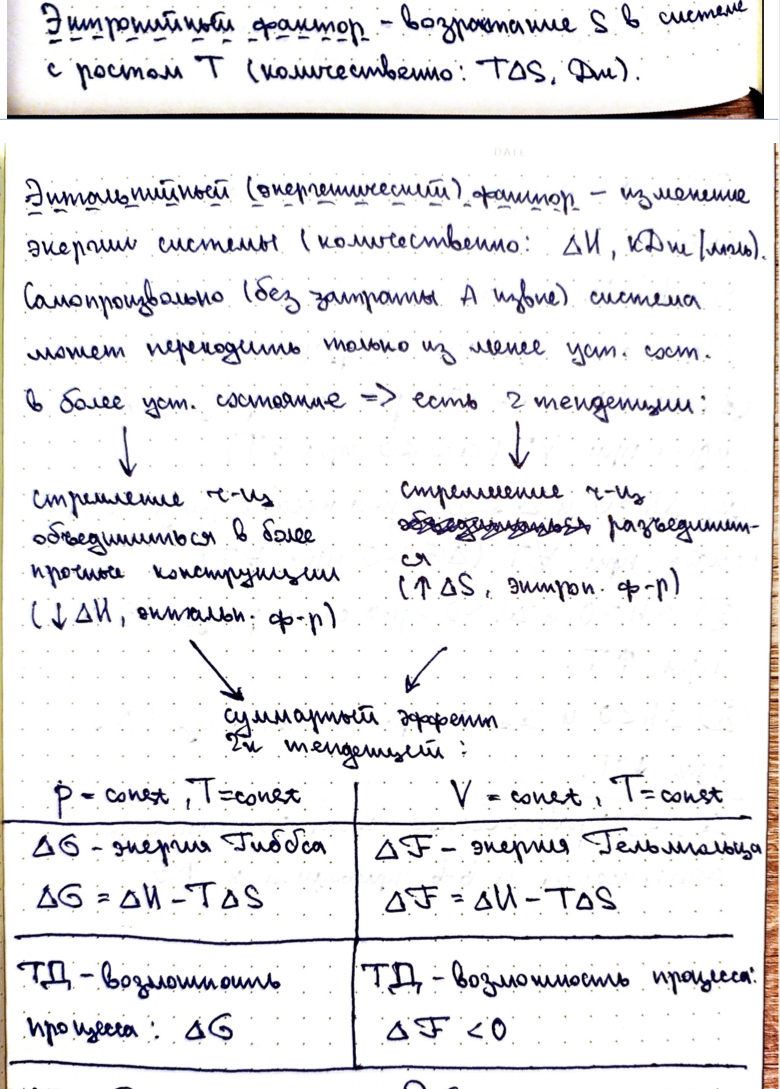 Энтропийный фактор - возрастание S в системе
с ростом T (количественно: TΔS, Дж).
Энтальпийный (энергетический) фактор - изменение
энергии системы (количественно: ΔH, кДж/моль).
Самопроизвольно (без затраты A извне) система
может переходить только из менее уст. сост.
в более уст. состояние => есть 2 тенденции:
стремление ч-ц
объединиться в более
прочные конструкции
(↓ΔH, энтальп. ф-р)
стремление ч-ц
разъединить-
ся
(↑ΔS, энтроп. ф-р)
суммарный эффект
2х тенденций:
p = const, T = const
ΔG - энергия Гиббса
ΔG = ΔH - TΔS
ТД - возможность
процесса: ΔG
V = const, T = const
ΔF - энергия Гельмгольца
ΔF = ΔU - TΔS
ТД - возможность процесса:
ΔF < 0